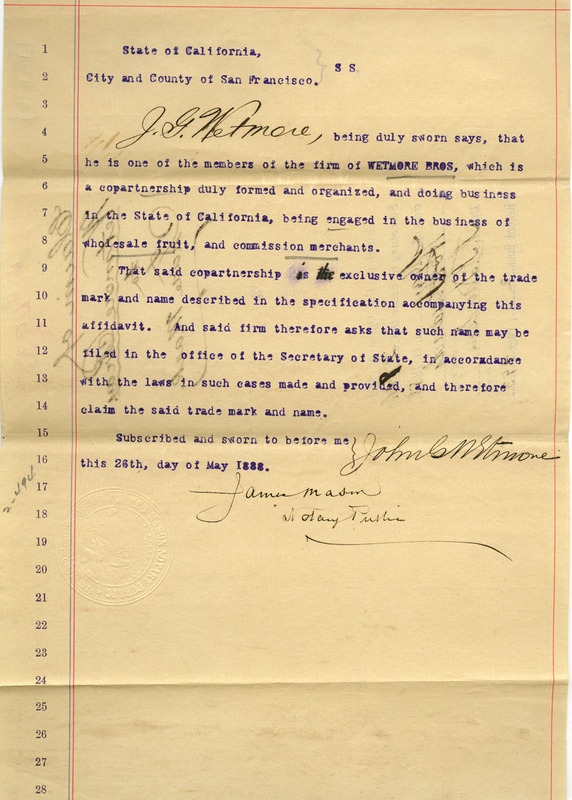 1 State of California,
S S.
2 City and County of San Francisco.
3
4 J. G. Wetmore, being duly sworn says, that
5 he is one of the members of the firm of WETMORE BROS, which is
6 a copartnership duly formed and organized, and doing business
7 in the State of California, being engaged in the business of
8 wholesale fruit, and commission merchants.
9 That said copartnership is the exclusive owner of the trade
10 mark and name described in the specification accompanying this
11 affidavit. And said firm therefore asks that such name may be
12 filed in the office of the Secretary of State, in accoradance
13 with the laws in such cases made and provided, and therefore
14 claim the said trade mark and name.
15 Subscribed and sworn to before me } John G Wetmore
16 this 26th, day of May 1888.
17 James Mason
18 Notary Public
19
20
21
22
23
24
25
26
27
28
2-494